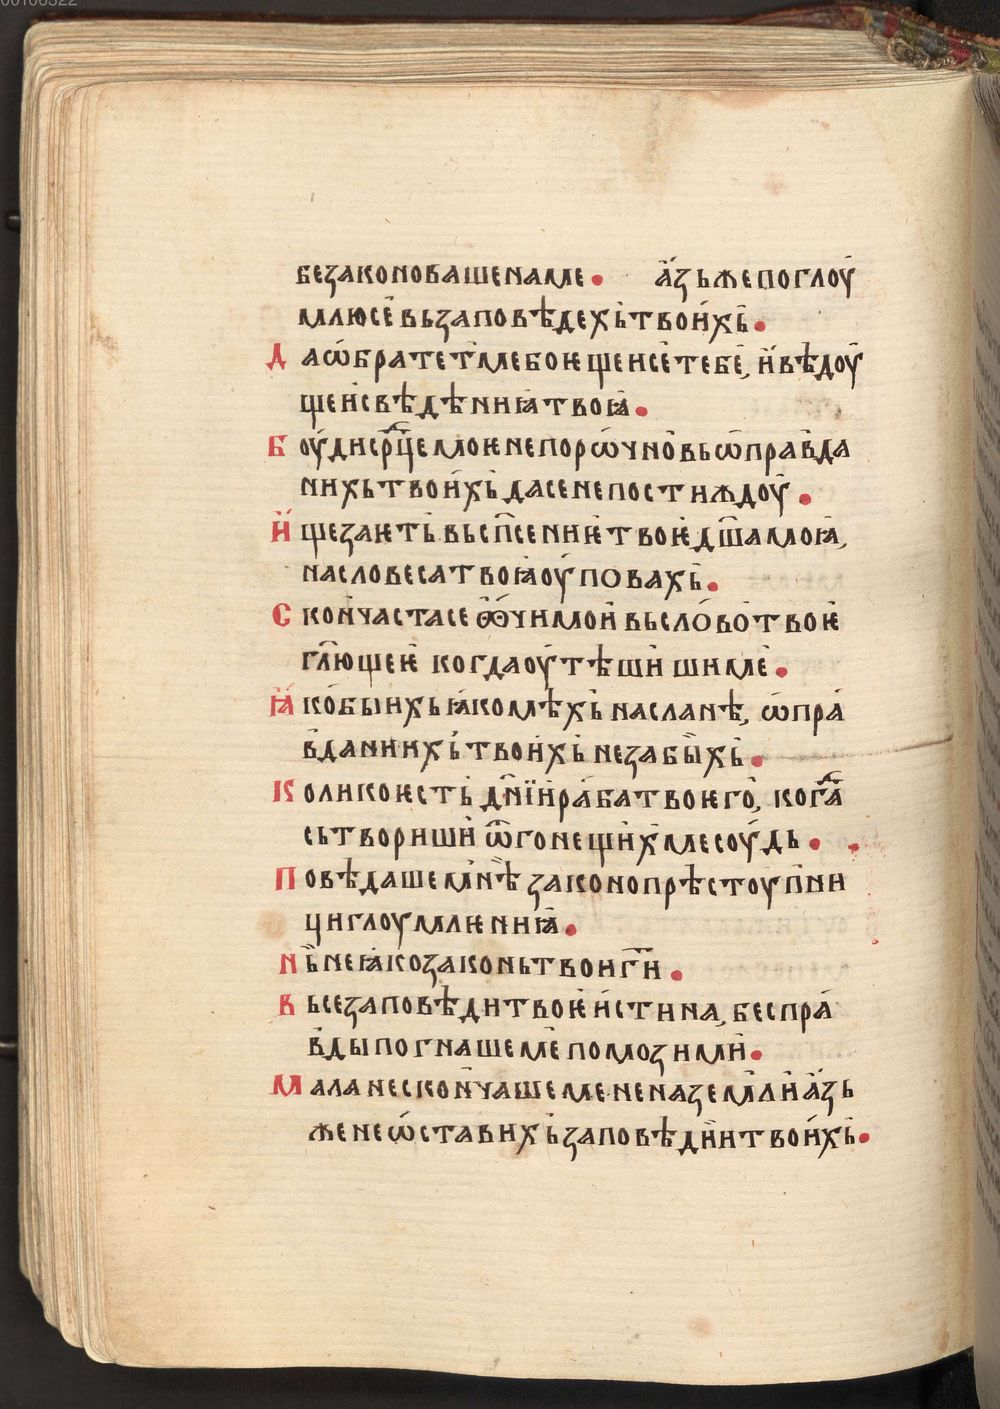 00106322
безаконоваше на ме. а҆́зь же поглоу҆
млю се вь заповѣдехь твои҆хь.
Да ѡ҆братет ме боꙗще и се тебе, и҆ вѣдоу҆
щеи свѣдѣниꙗ твоꙗ.
Боу҆ди срⷣце моѥ непорѡчно вь ѡ҆правда
нихь твои҆хь да се не постиждоу҆.
И҆щезаѥть вь сп҃сениѥ твоѥ дш҃а моꙗ,
на словеса твоꙗ оу҆повахь.
Скончаста се ѻ҆чи мои вь слово твоѥ
гл҃юще ѥ когда оу҆тѣшиши ме.
Ꙗко бых ь ꙗко мѣхь на сланѣ, ѡ҆пра
вданиихь твои҆хь не забыхь.
Колико ѥсть дн҃їи раба твоѥго, когⷣа
сьтвориши ѿ гонещиⷯ ме соу҆дь.
Повѣдаше мнѣ законопрѣстоупни
ци глоумлѥниꙗ.
Нь не ꙗко законь твои гⷭ҇и.
Все заповѣди твоѥ и҆стина, беспра
вды погнаше ме помози ми.
Мала не скончаше мене на земли а҆́зь
же не ѡ҆ставихь заповѣдии твои҆хь.